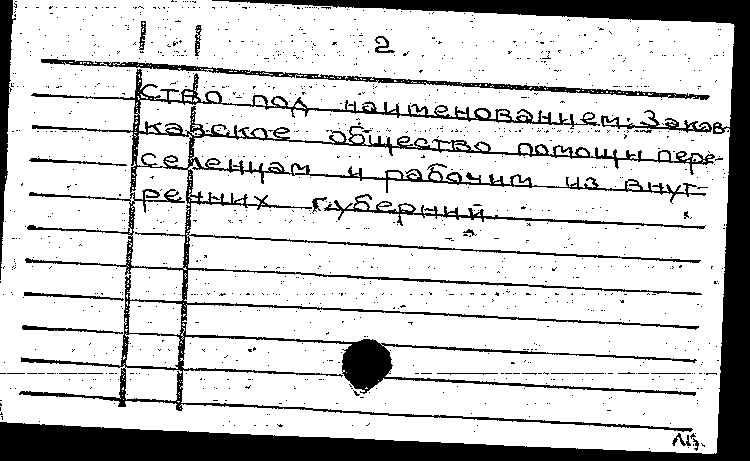 2
ство под наименованием: Закав-
казское общество помощи пере-
селенцам и рабочим из внут-
ренних губерний.